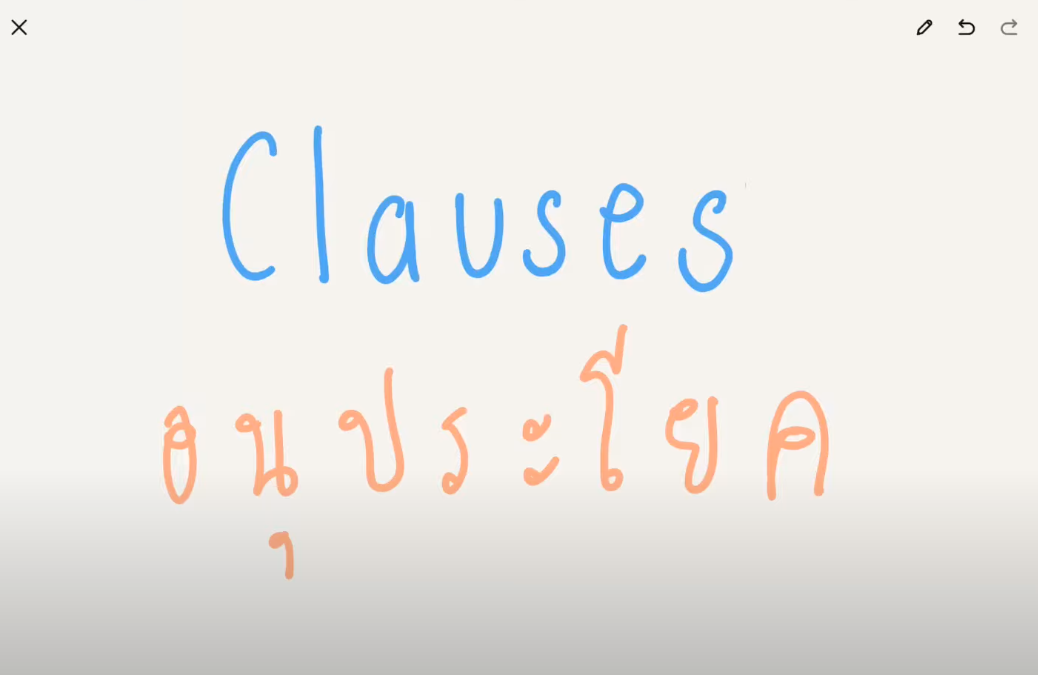 Clauses
อนุประโยค